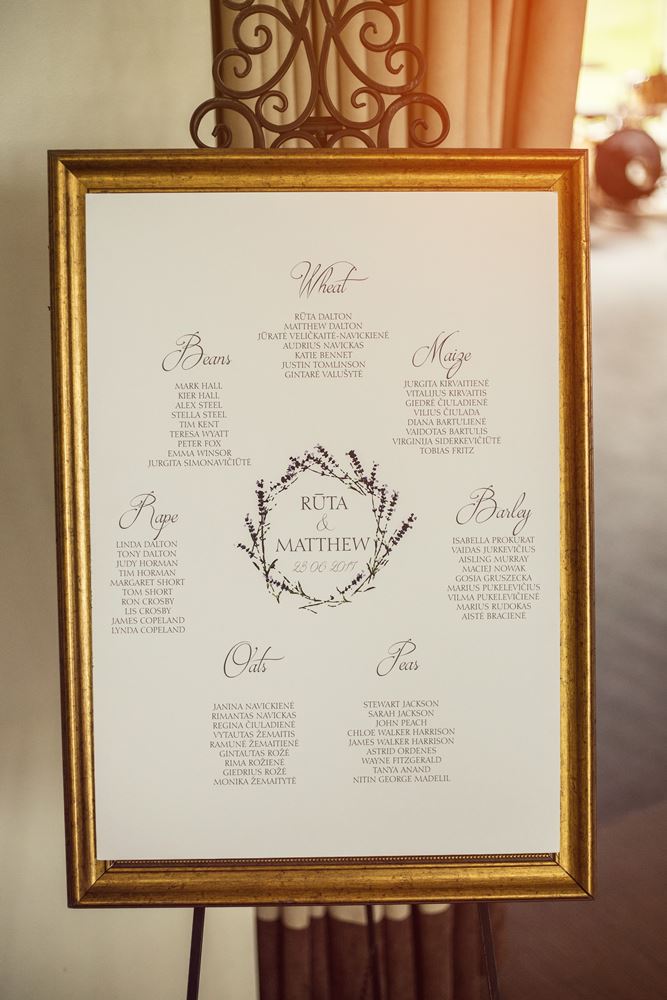 Wheat
RŪTA DALTON
MATTHEW DALTON
JŪRATĖ VELIČKAITĖ-NAVICKIENĖ
AUDRIUS NAVICKAS
KATIE BENNET
JUSTIN TOMLINSON
GINTARĖ VALUŠYTĖ
Beans
MARK HALL
KIER HALL
ALEX STEEL
STELLA STEEL
TIM KENT
TERESA WYATT
PETER FOX
EMMA WINSOR
JURGITA SIMONAVIČIŪTĖ
Maize
JURGITA KIRVAITIENĖ
VITALIJUS KIRVAITIS
GIEDRĖ ČIULADIENĖ
VILIUS ČIULADA
DIANA BARTULIENĖ
VAIDOTAS BARTULIS
VIRGINIJA SIDERKEVIČIŪTĖ
TOBIAS FRITZ
Rape
LINDA DALTON
TONY DALTON
JUDY HORMAN
TIM HORMAN
MARGARET SHORT
TOM SHORT
RON CROSBY
LIS CROSBY
JAMES COPELAND
LYNDA COPELAND
RŪTA
&
MATTHEW
23 06 2017
Barley
ISABELLA PROKURAT
VAIDAS JURKEVIČIUS
AISLING MURRAY
MACIEJ NOWAK
GOSIA GRUSZECKA
MARIUS PUKELEVIČIUS
VILMA PUKELEVIČIENĖ
MARIUS RUDOKAS
AISTĖ BRACIENĖ
Oats
JANINA NAVICKIENĖ
RIMANTAS NAVICKAS
REGINA ČIULADIENĖ
VYTAUTAS ŽEMAITIS
RAMUNĖ ŽEMAITIENĖ
GINTAUTAS ROŽĖ
RIMA ROŽIENĖ
GIEDRIUS ROŽĖ
MONIKA ŽEMAITYTĖ
Peas
STEWART JACKSON
SARAH JACKSON
JOHN PEACH
CHLOE WALKER HARRISON
JAMES WALKER HARRISON
ASTRID ORDENES
WAYNE FITZGERALD
TANYA ANAND
NITIN GEORGE MADELIL